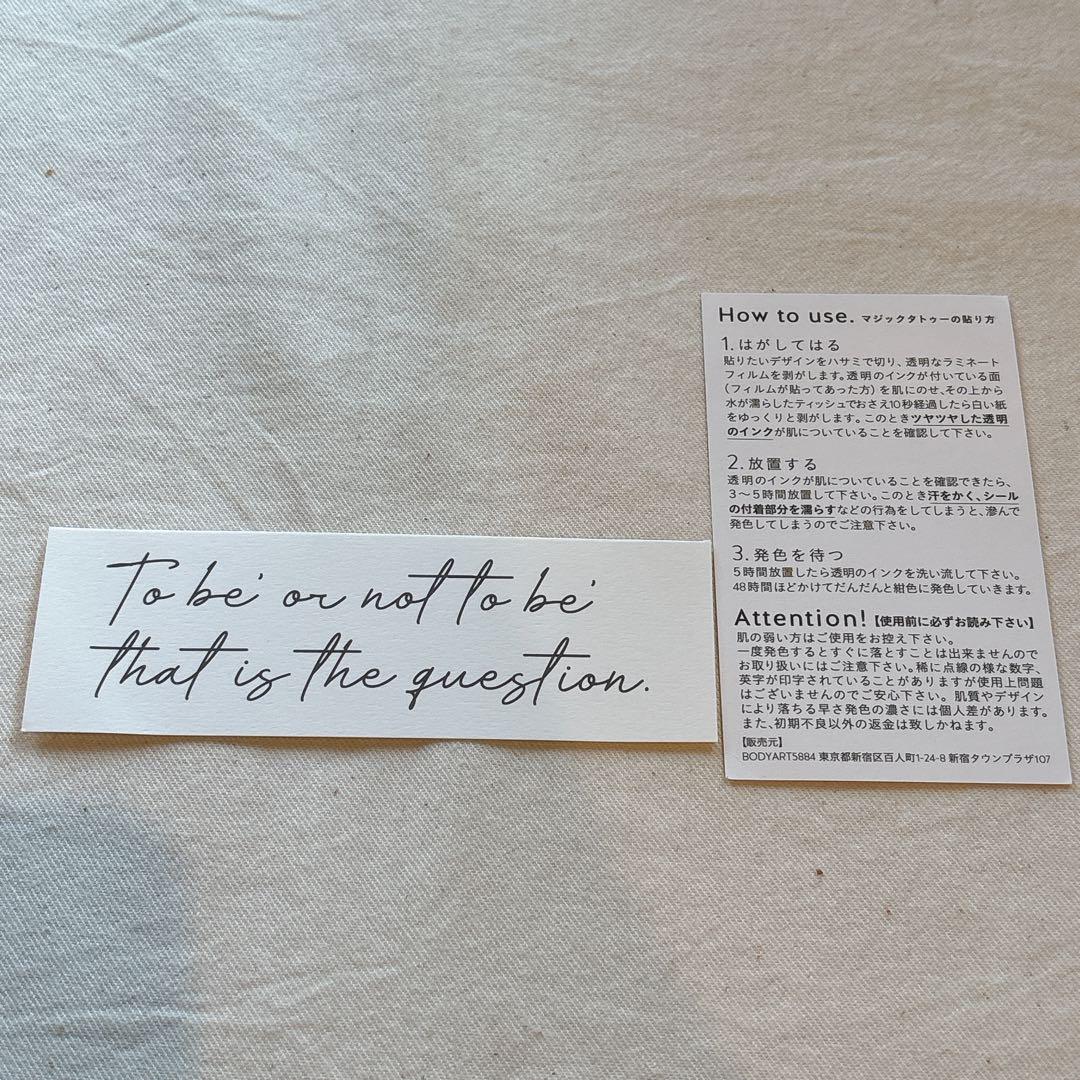 To be' or not to be'
that is the question.
How to use. マジックタトゥーの貼り方
1.はがしてはる
貼りたいデザインをハサミで切り、透明なラミネート
フィルムを剥がします。透明のインクが付いている面
(フィルムが貼ってあった方)を肌にのせ、その上から
水が濡らしたティッシュでおさえ10秒経過したら白い紙
をゆっくりと剥がします。このときツヤツヤした透明
のインクが肌についていることを確認して下さい。
2.放置する
透明のインクが肌についていることを確認できたら、
3〜5時間放置して下さい。このとき汗をかく、シール
の付着部分を濡らすなどの行為をしてしまうと、滲んで
発色してしまうのでご注意下さい。
3.発色を待つ
5時間放置したら透明のインクを洗い流して下さい。
48時間ほどかけてだんだんと紺色に発色していきます。
Attention!【使用前に必ずお読み下さい】
肌の弱い方はご使用をお控え下さい。
一度発色するとすぐに落とすことは出来ませんので
お取り扱いにはご注意下さい。稀に点線の様な数字、
英字が印字されていることがありますが使用上問題
はございませんのでご安心下さい。肌質やデザイン
により落ちる早さ発色の濃さには個人差があります。
また、初期不良以外の返金は致しかねます。
【販売元】
BODYART5884 東京都新宿区百人町1-24-8 新宿タウンプラザ107